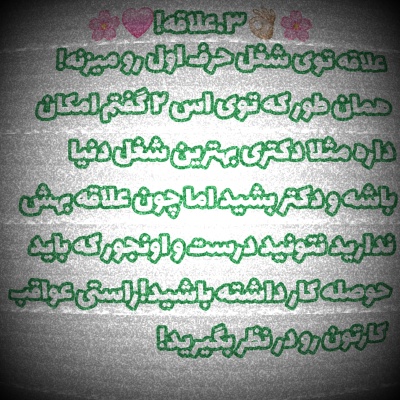 🌸💗۳.علاقه!👏🏻🌸
علاقه توی شغل حرف اول رو میزنه!
همان طور که توی اس ۲ گفتم امکان
داره مثلا دکتری بهترین شغل دنیا
باشه و دکتر بشید اما چون علاقه بهش
ندارید نتونید درست و اونجور که باید
حوصله کار داشته باشید!راستی عواقب
کارتون رو در نظر بگیرید!